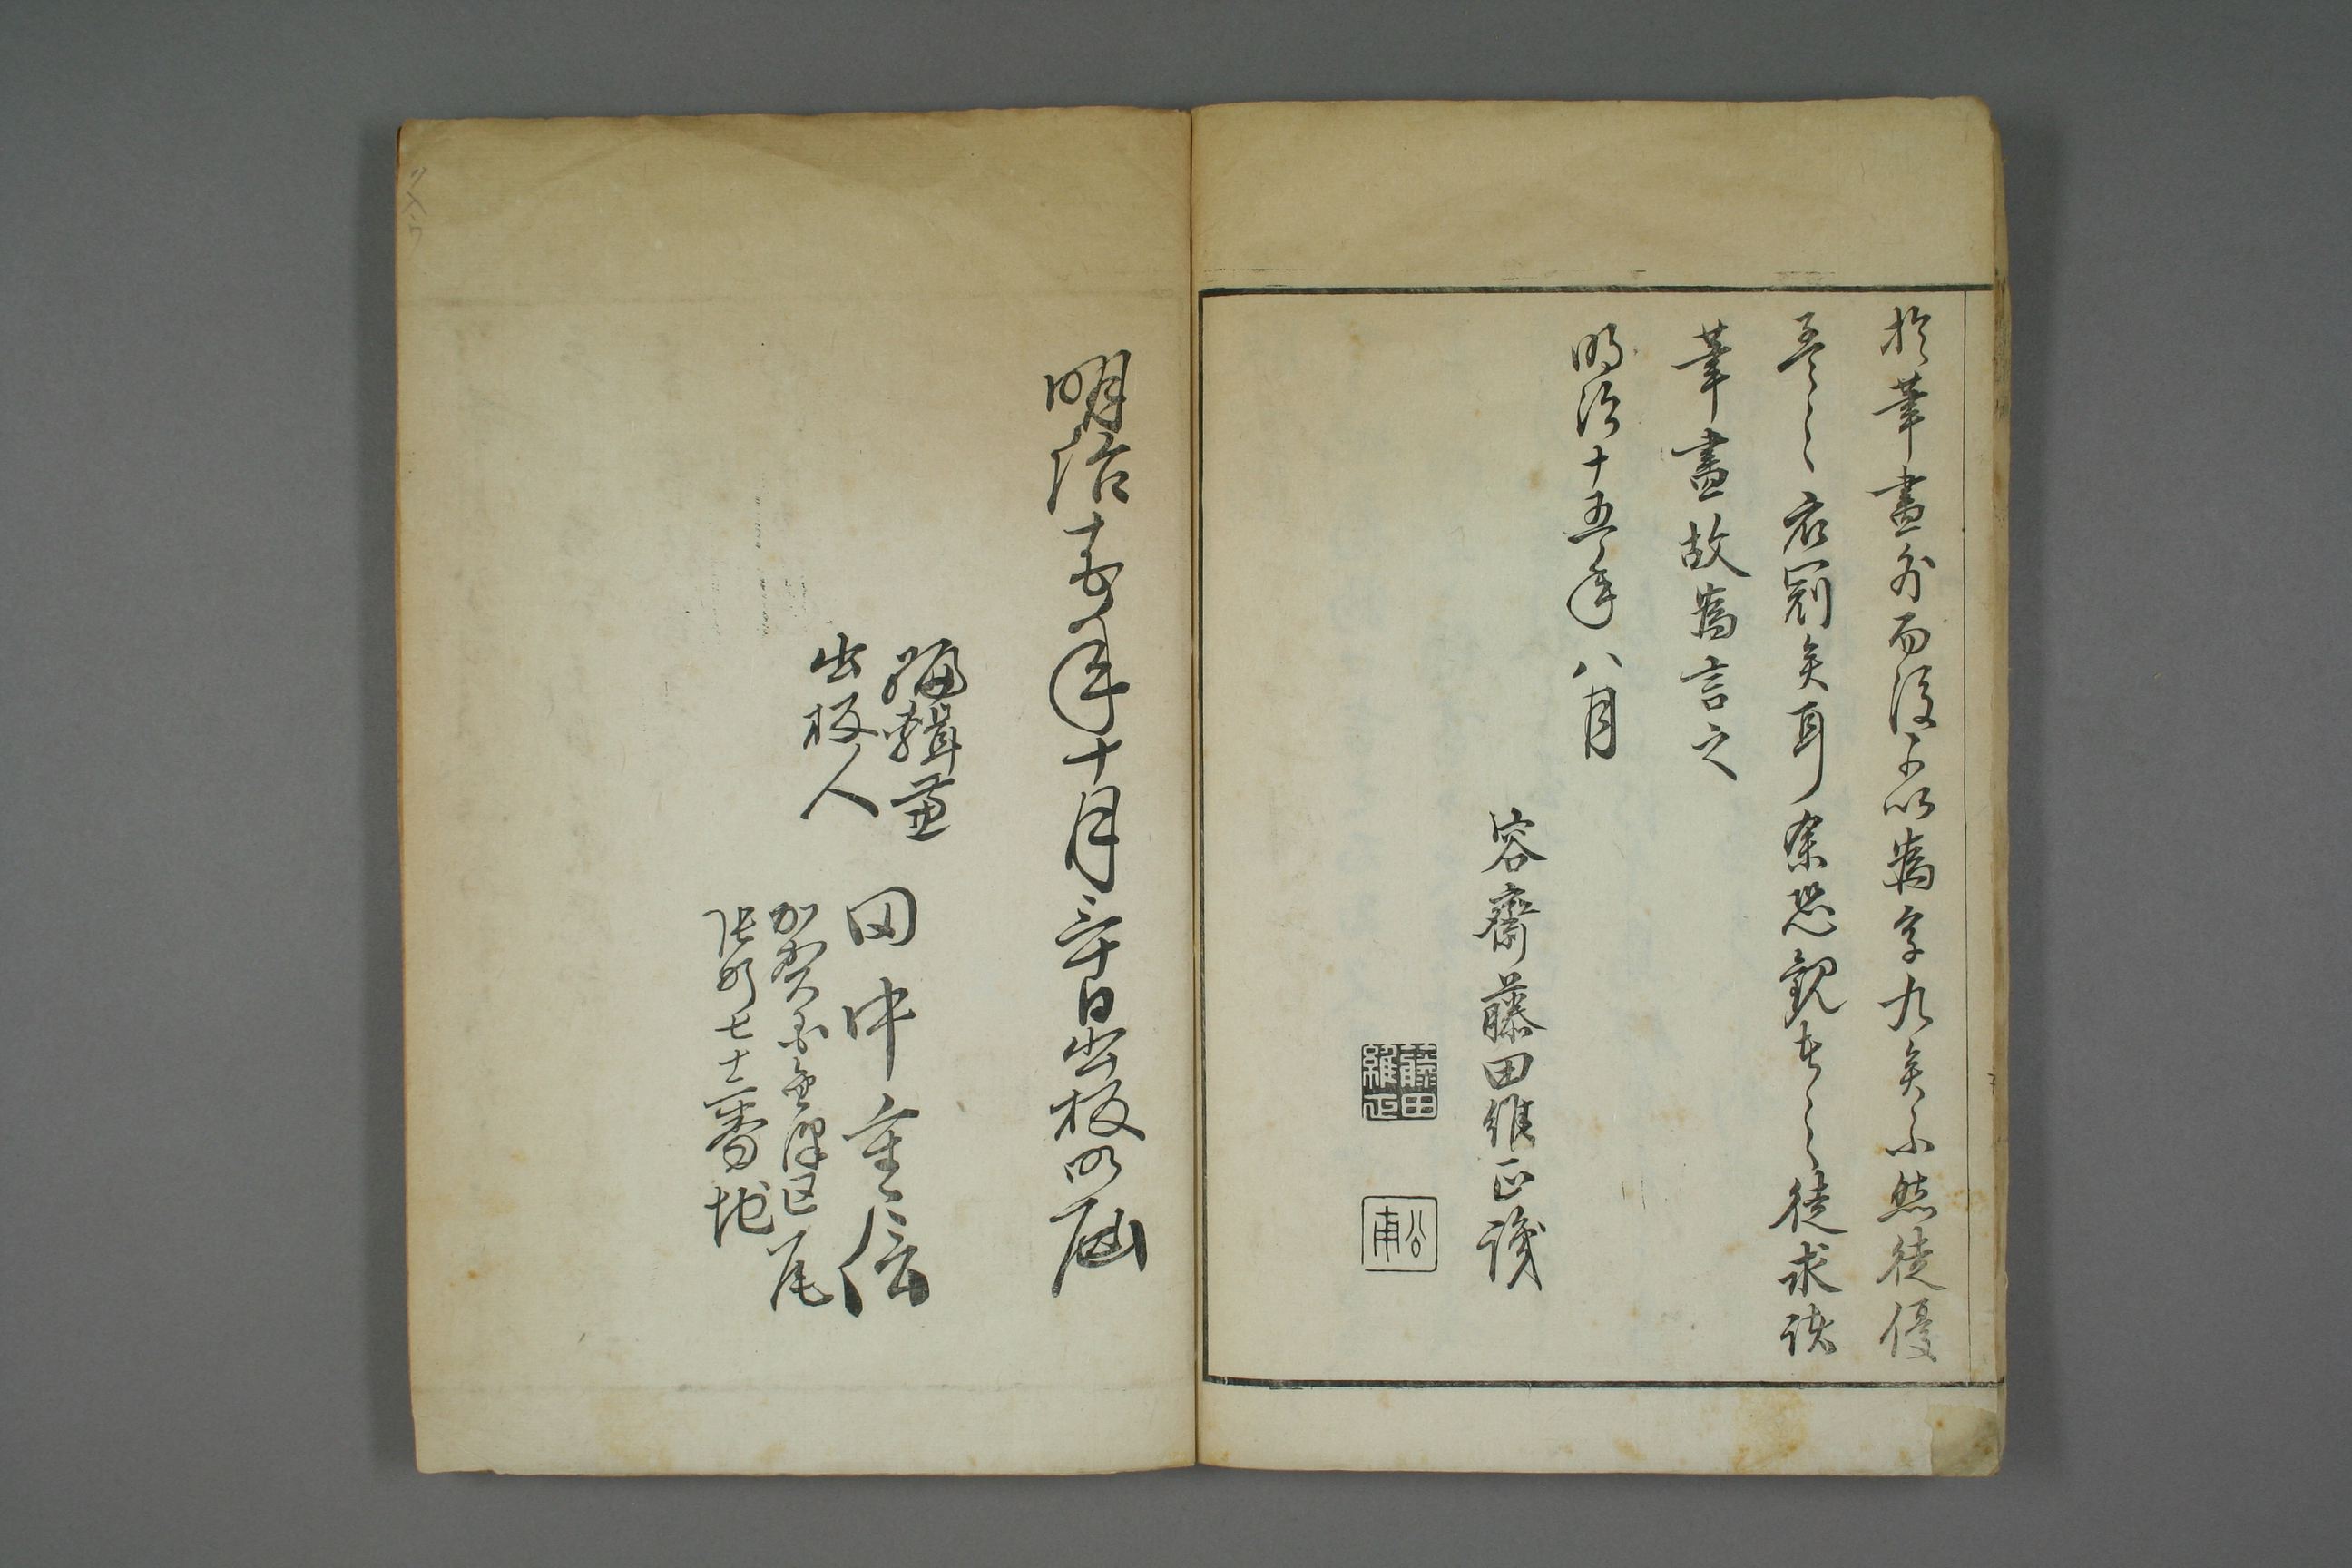 於筆畫外而後可以為学九矣不然徒優
孟之衣冠矣耳余恐観者之徒求諸
筆畫故為言之
明治十五年八月
容齋藤田維正識
藤田維正
公甫
明治十五年十月三十日出板御届
編輯兼
出板人
田中重信
加賀国金澤区尾
張町七十二番地